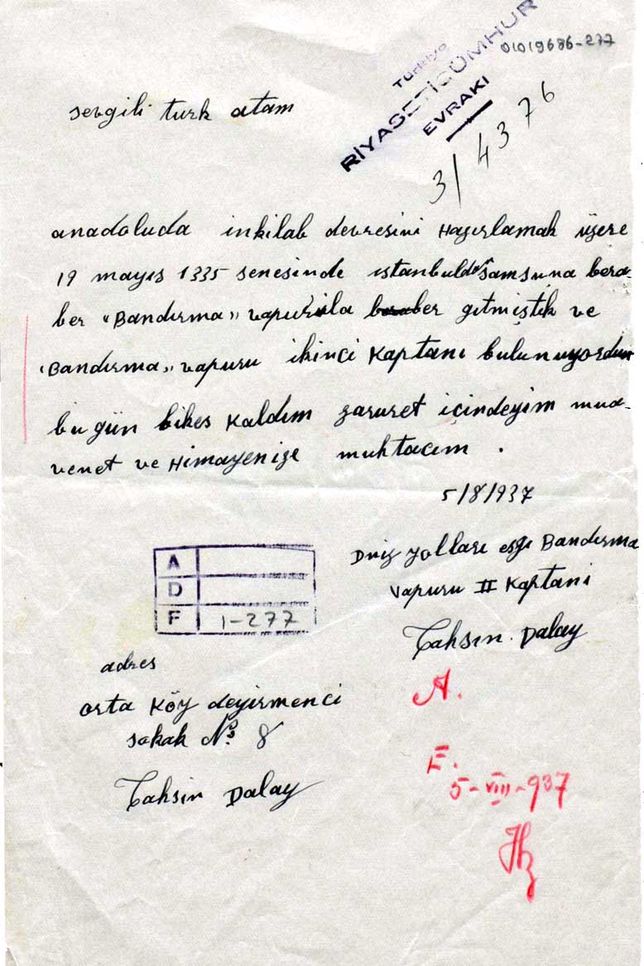 01019686-277
TÜRKİYE
RİYASETİCÜMHUR
EVRAKI
3/4376
sevgili türk atam
anadoluda inkilab devresini Hazırlamak üzere
19 mayıs 1335 senesinde istanbuldan samsuna bera
ber "Bandırma" vapurila gitmiştik ve
"Bandırma" vapuru ikinci Kaptanı bulunuyordum
bu gün bikes Kaldım zaruret içindeyim mua-
venet ve Himayenize muhtacım .
5/8/937
Dniz yolları eski Bandırma
vapuru II Kaptanı
Tahsin Dalay
A
D
F 1-277
adres
orta Köy deyirmenci
sokak No 8
Tahsin Dalay
A.
E.
5-VIII-937